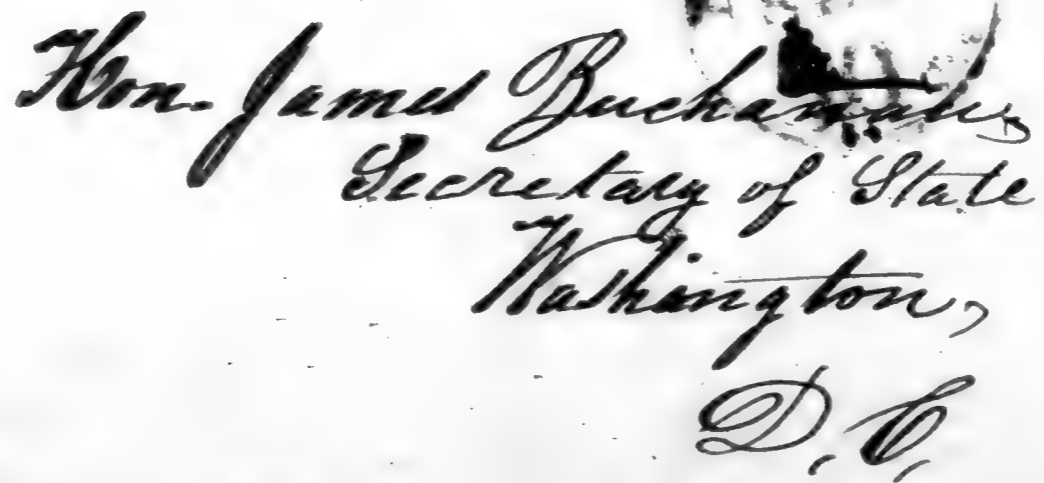 Hon. James Buchanan,
Secretary of State
Washington,
D. C.